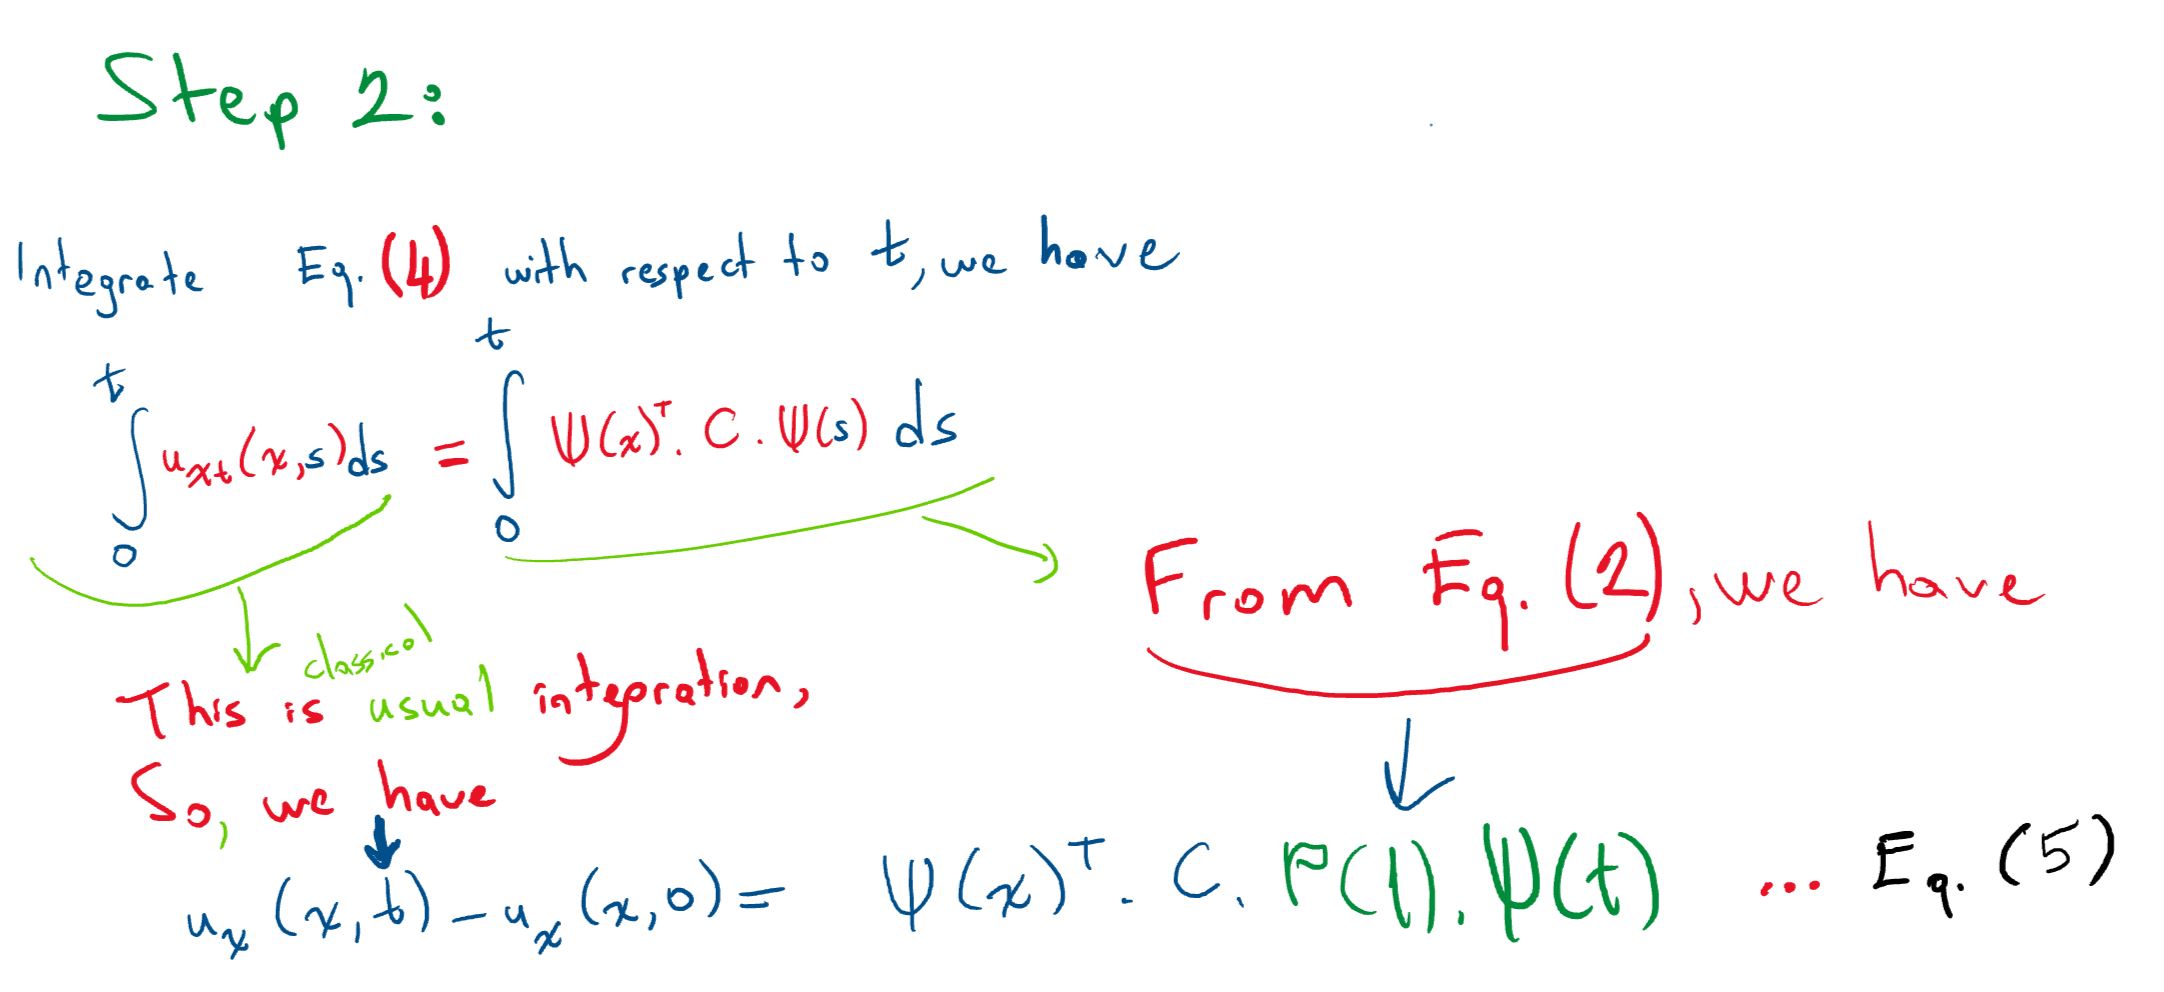 Step 2:
Integrate Eq. (4) with respect to t, we have
∫₀ᵗ uₓₜ(x,s)ds = ∫₀ᵗ Ψ(x)ᵀ. C . Ψ(s) ds
From Eq. (2), we have
classical
This is usual integration,
So, we have
uₓ(x,t) – uₓ(x,0) = Ψ(x)ᵀ. C. P(1). Ψ(t) ... Eq. (5)